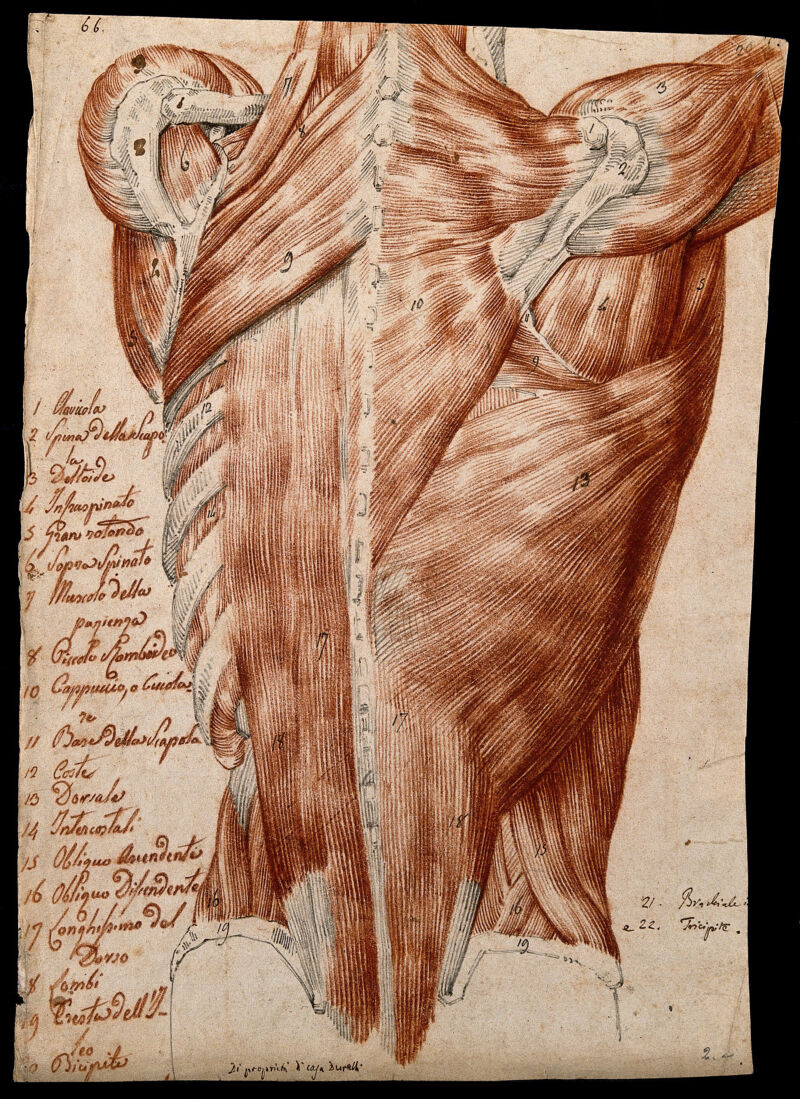 66.
1 Clavicola
2 Spina della Scapo
la
3 Deltoide
4 Infraspinato
5 Gran rotondo
6 Sopra Spinato
7 Muscolo della
pazienza
8 Piccolo Romboideo
10 Cappuccio, o Cucola
re
11 Base della Scapola
12 Coste
13 Dorsale
14 Intercostali
15 Obliquo Ascendente
16 Obliquo Disendente
17 Longhissimo del
Dorso
8 Lombi
9 Cresta dell'I-
leo
0 Bicipite
21. Brachiale
e 22. Tricipite.
Di proprietà di casa Durelli
2.
9
1
8
6
2
5
7
8
9
12
14
17
18
16
19
1
2
3
4
5
10
9
13
17
18
15
16
19